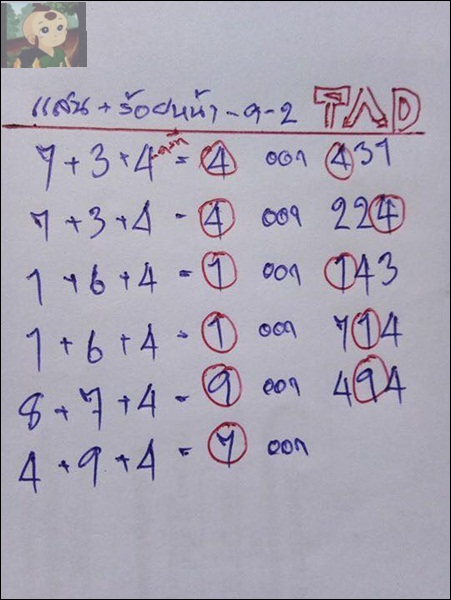 แสน + ร้อยหน้า - ๑ - 2 TAD
7 + 3 + 4 = 4 ออก 431
7 + 3 + 4 = 4 ออก 224
1 + 6 + 4 = 1 ออก 143
1 + 6 + 4 = 1 ออก 714
8 + 7 + 4 = 9 ออก 494
4 + 9 + 4 = 7 ออก